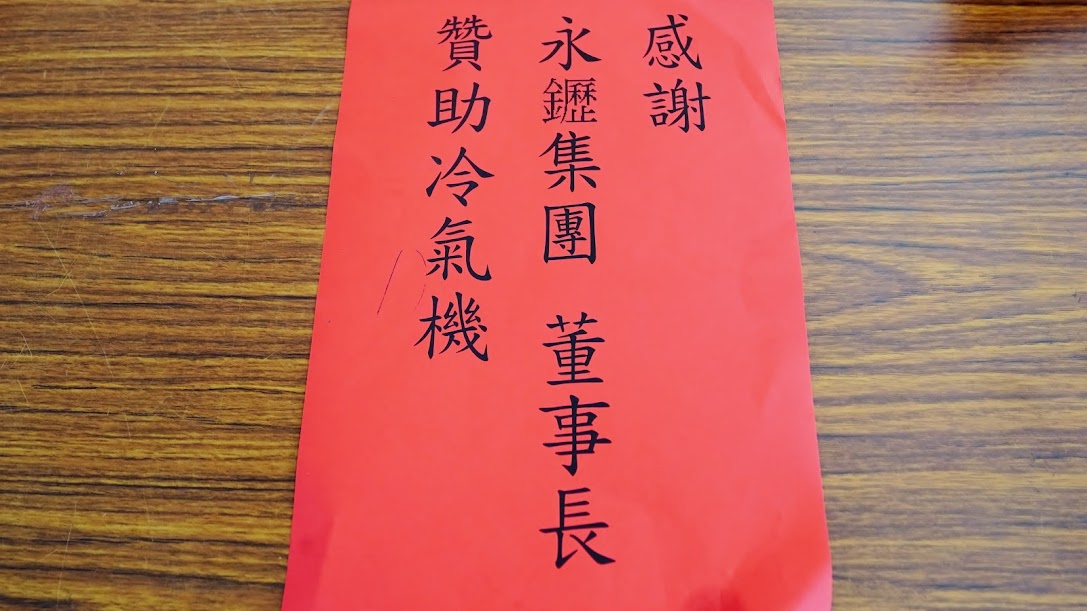 感謝
永鑩集團 董事長
贊助冷氣機